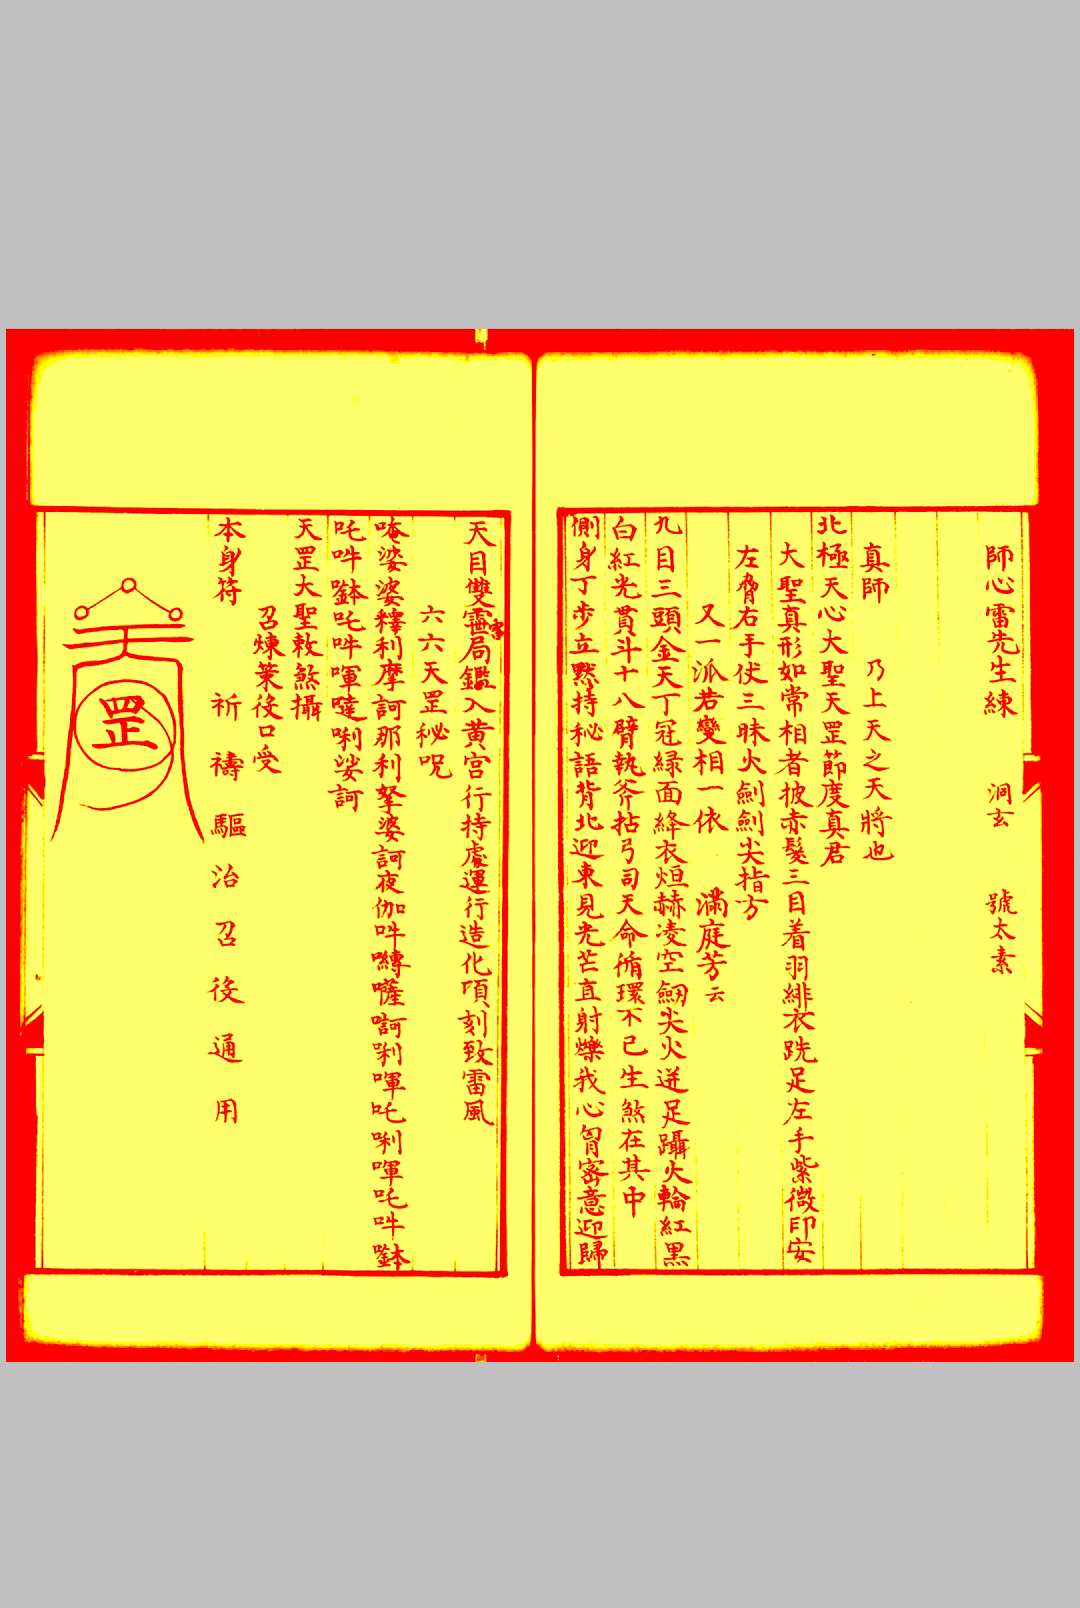 師心雷先生練 洞玄 號太素
真師 乃上天之天將也
北極天心大聖天罡節度真君
大聖真形如常相者披赤髮三目着羽緋衣跣足左手紫微印安
左脅右手仗三昧火劍劍尖指方
又一派若變相一依 滿庭芳云
九目三頭金天丁冠緑面絳衣烜赫凌空劒尖火迸足躡火輪紅黑
白紅光貫斗十八臂執斧拈弓司天命循環不已生煞在其中
側身丁步立黙持秘語背北迎東見光芒直射爍我心胷密意迎歸
天目雙局鑑入黄宫行持處運行造化項刻致雷風
六六天罡秘呪
唵娑娑釋利摩訶那利拏婆訶夜伽吽嚩囉訶唎喗吒唎喗吒吽𨱎
吒吽𨱎吒吽喗噠唎娑訶
天罡大聖敕煞攝
召煉策役口受
本身符 祈禱驅治召役通用
罡